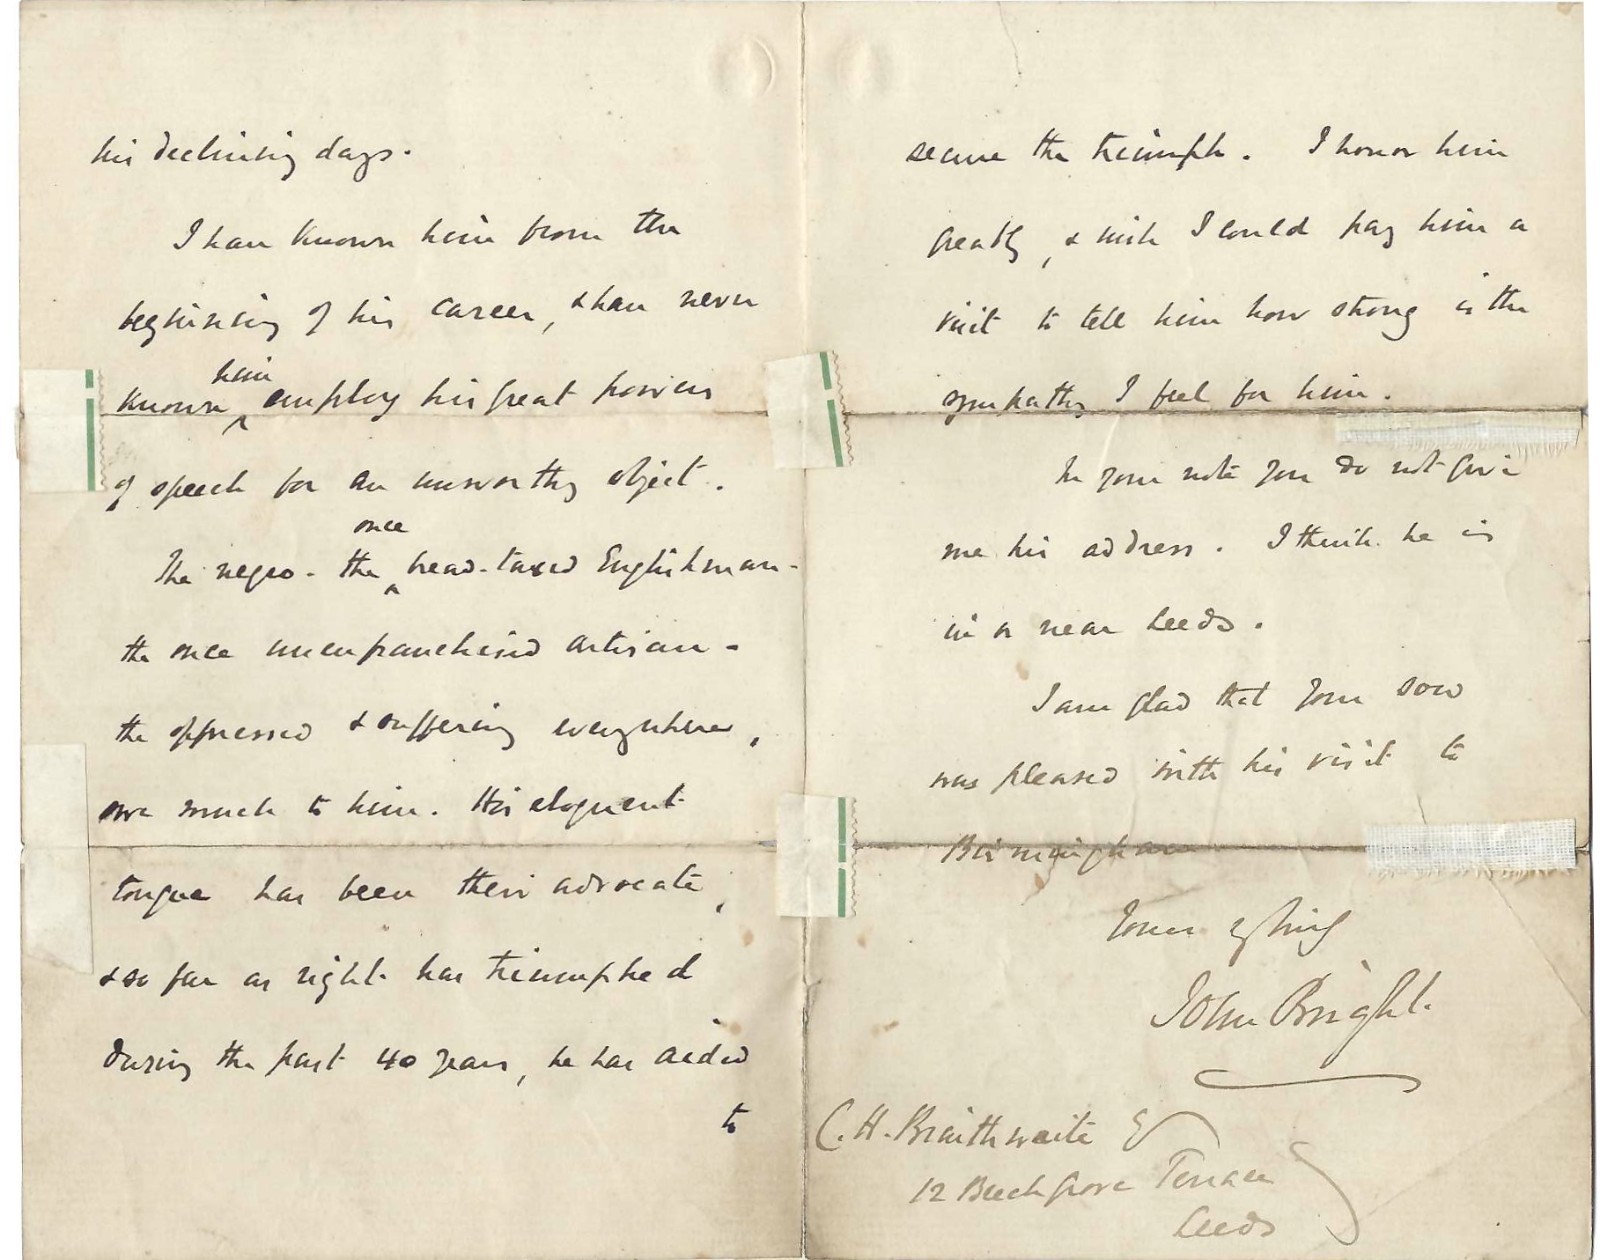 his declining days.
I have known him from the
beginning of his career, & have never
him
known employ his great powers
of speech for an unworthy object.
once
The negro - the bread-taxed Englishman -
the once unenfranchised artisan -
the oppressed & suffering everywhere,
owe much to him. His eloquent
tongue has been their advocate,
& so far as right has triumphed
during the past 40 years, he has aided
to
secure the triumph. I honor him
greatly, & wish I could pay him a
visit to tell him how strong is the
sympathy I feel for him.
In your note you do not give
me his address. I think he is
in or near Leeds.
I am glad that your son
was pleased with his visit to
Birmingham
Yours
John Bright.
C. H. Braithwaite Esq
12 Beech Grove Terrace
Leeds